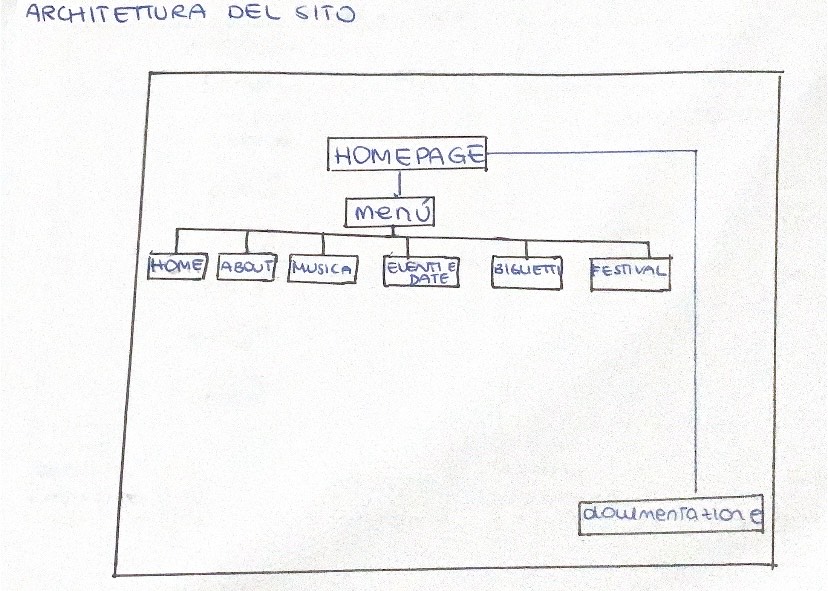 ARCHITETTURA DEL SITO
HOMEPAGE
menú
HOME
ABOUT
MUSICA
EVENTI E
DATE
BIGLIETTI
FESTIVAL
documentazione